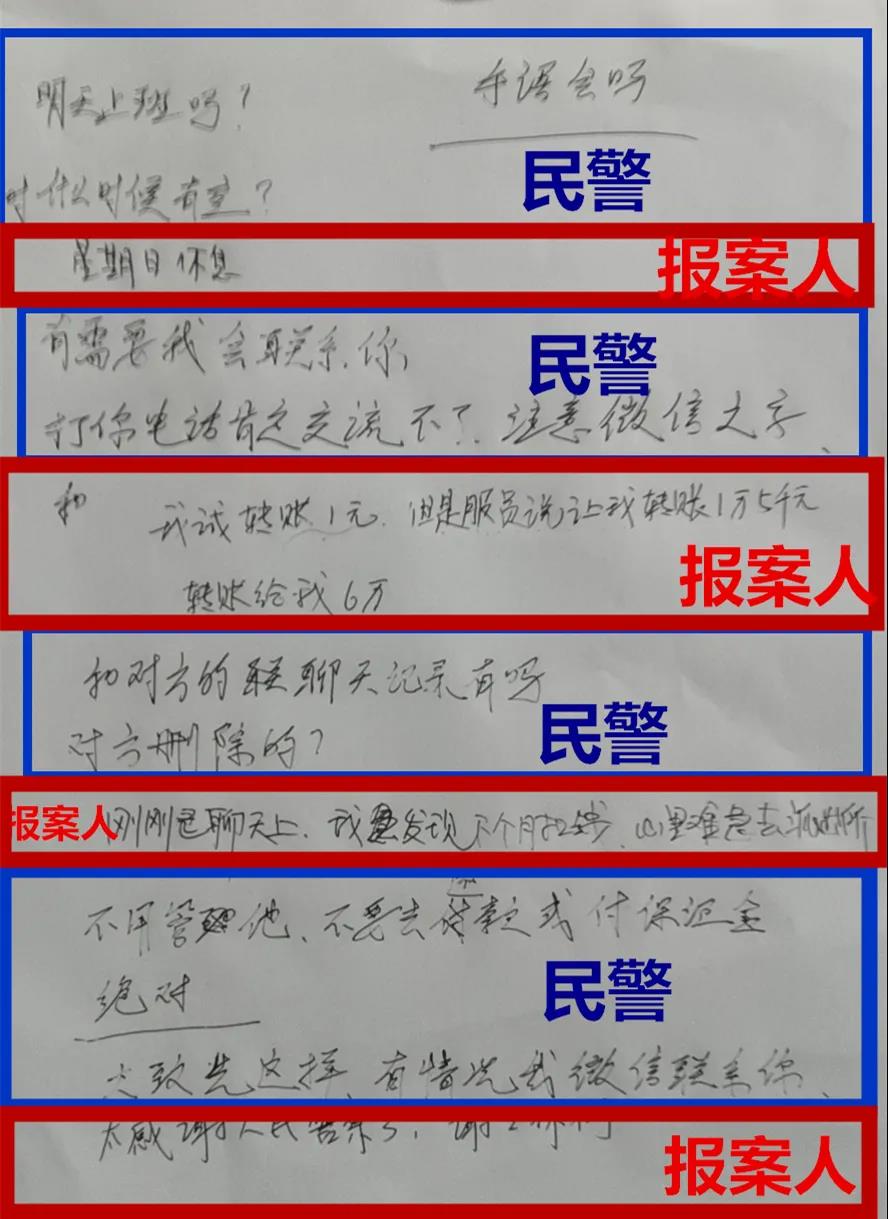 明天上班吗？ 手语会吗
民警
什么时候有空？
星期日休息 报案人
有需要我会联系你，
民警
打你电话肯定交流不了、注意微信文字、
和 我试转账1元．但是服员说让我转账1万5千元
报案人
转账给我6万
和对方的联聊天记录有吗
民警
对方删除的？
报案人 刚刚是聊天上．我发现下个月扣钱．心里难急去派出所
不用管理他、不要去贷款或付保证金
民警
绝对
大致先这样、有情况我微信联系你、
太感谢人民警察了，谢谢你们
报案人